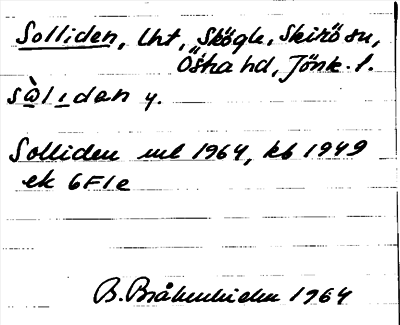 Solliden, lht, Skögle, Skirö sn,
Östra hd, Jönk. l.
sὼlıdan y.
Solliden ml 1964, kb 1949
ek 6F1e
B. 1964